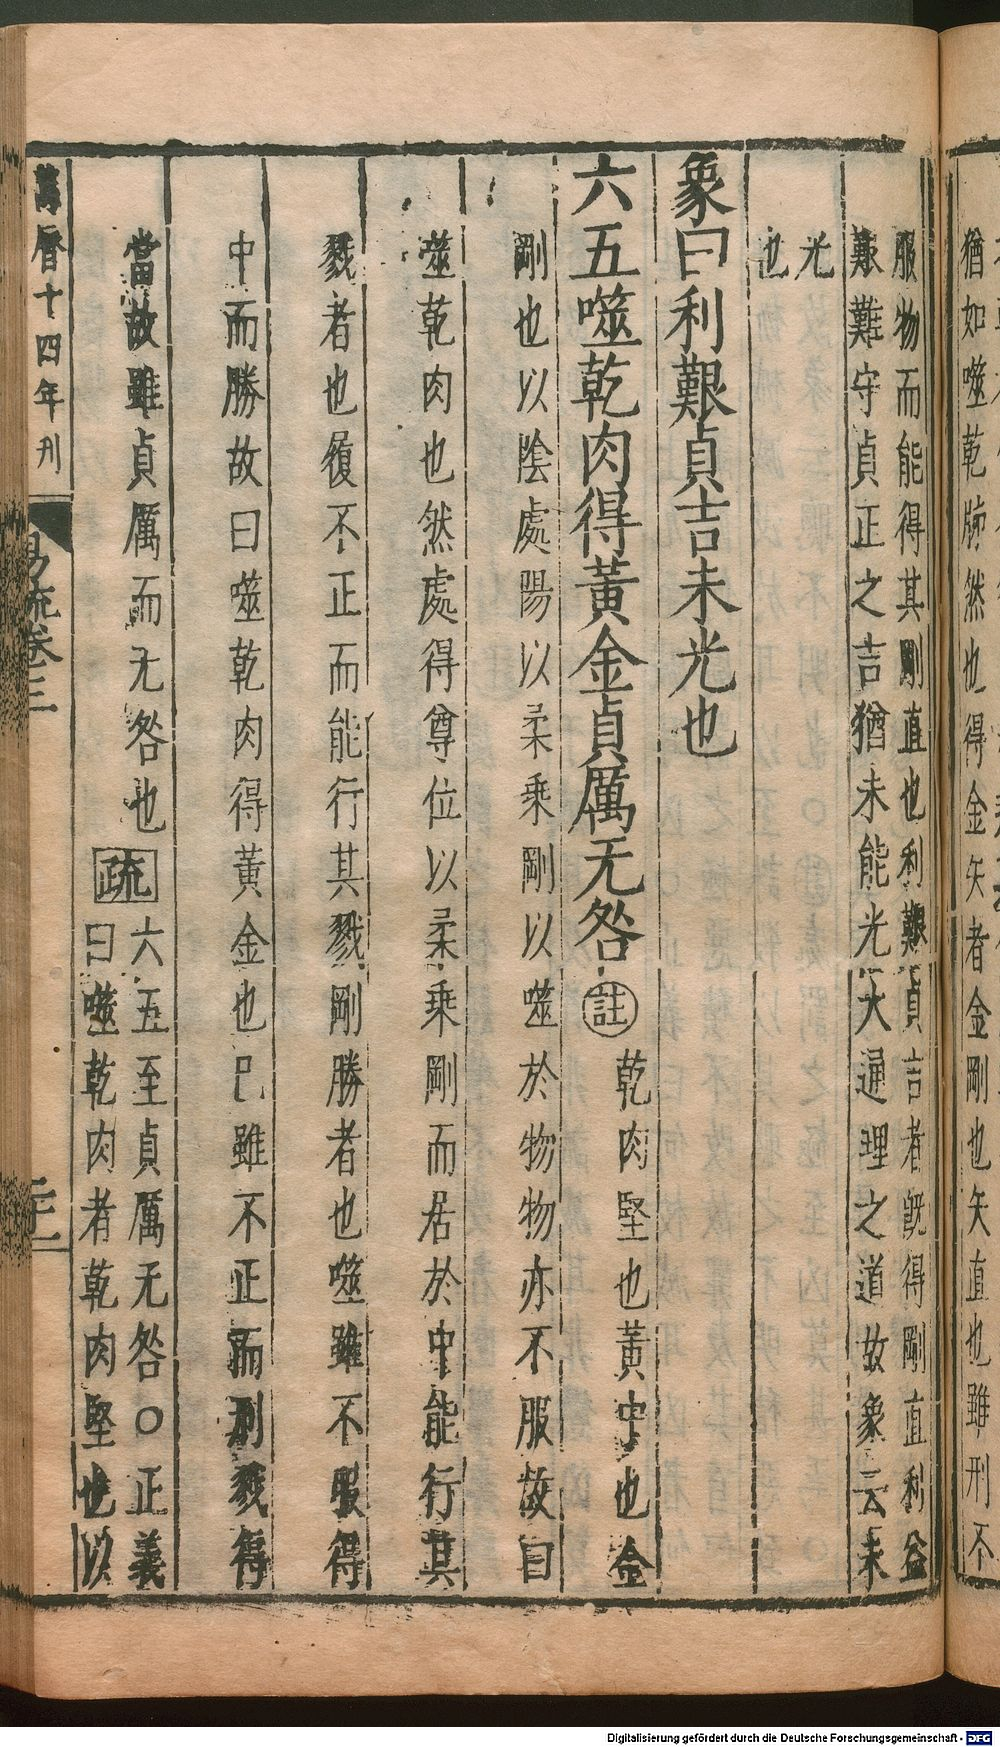 猶如噬乾胏然也得金矢者金剛也矢直也雖刑不
服物而能得其剛直也利艱貞吉者既得剛直利益
艱難守貞正之吉猶未能光大通理之道故象云未
光
也
象曰利艱貞吉未光也
六五噬乾肉得黃金貞厲无咎 註 乾肉堅也黃中也金
剛也以陰處陽以柔乘剛以噬於物物亦不服故曰
噬乾肉也然處得尊位以柔乘剛而居於中能行其
戮者也履不正而能行其戮剛勝者也噬雖不服得
中而勝故曰噬乾肉得黃金也已雖不正而刑戮得
當故雖貞厲而无咎也 疏 六五至貞厲无咎○正義
曰噬乾肉者乾肉堅也以
萬曆十四年刋
易疏卷三
二十一
Digitalisierung gefördert durch die Deutsche Forschungsgemeinschaft - DFG